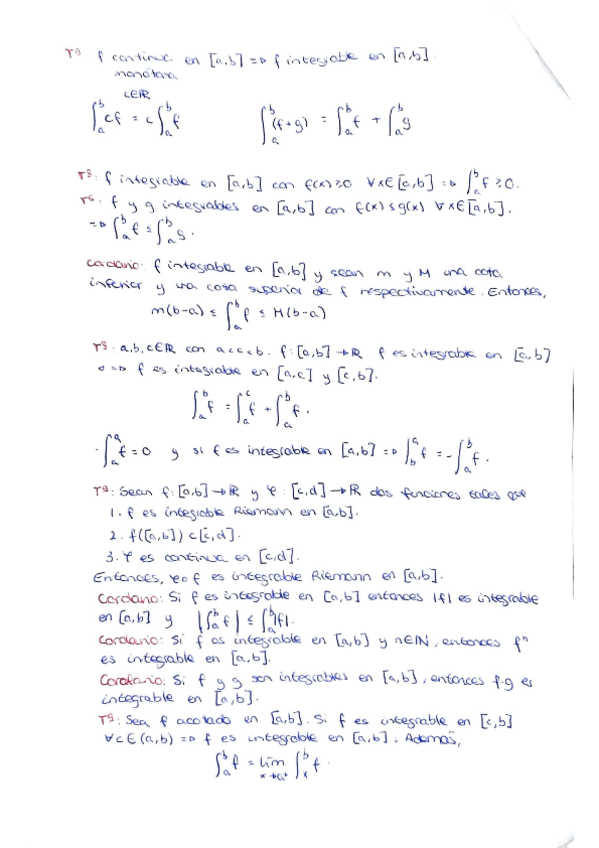 Tª f continua en [a,b] => f integrable en [a,b].
monótona
c∈ℝ
∫_a^b cf = c∫_a^b f    ∫_a^b (f+g) = ∫_a^b f + ∫_a^b g
Tª: f integrable en [a,b] con f(x)≥0 ∀x∈[a,b] => ∫_a^b f ≥ 0.
Tª: f y g integrables en [a,b] con f(x)≤g(x) ∀x∈[a,b].
=> ∫_a^b f ≤ ∫_a^b g.
Corolario: f integrable en [a,b] y sean m y M una cota
inferior y una cota superior de f respectivamente. Entonces,
m(b-a) ≤ ∫_a^b f ≤ M(b-a)
Tª: a,b,c∈ℝ con a<c<b. f:[a,b]→ℝ f es integrable en [a,b]
<=> f es integrable en [a,c] y [c,b].
∫_a^b f = ∫_a^c f + ∫_a^b f.
· ∫_a^a f = 0 y si f es integrable en [a,b] => ∫_b^a f = -∫_a^b f.
Tª: Sean f:[a,b]→ℝ y φ:[c,d]→ℝ dos funciones tales que
1. f es integrable Riemann en [a,b].
2. f([a,b])⊂[c,d].
3. φ es continua en [c,d].
Entonces, φ∘f es integrable Riemann en [a,b].
Corolario: Si f es integrable en [a,b] entonces |f| es integrable
en [a,b] y |∫_a^b f| ≤ ∫_a^b |f|.
Corolario: Si f es integrable en [a,b] y n∈ℕ, entonces fⁿ
es integrable en [a,b].
Corolario: Si f y g son integrables en [a,b], entonces f·g es
integrable en [a,b].
Tª: Sea f acotado en [a,b]. Si f es integrable en [c,b]
∀c∈(a,b) => f es integrable en [a,b]. Además,
∫_a^b f = lim_{x→a⁺} ∫_x^b f.